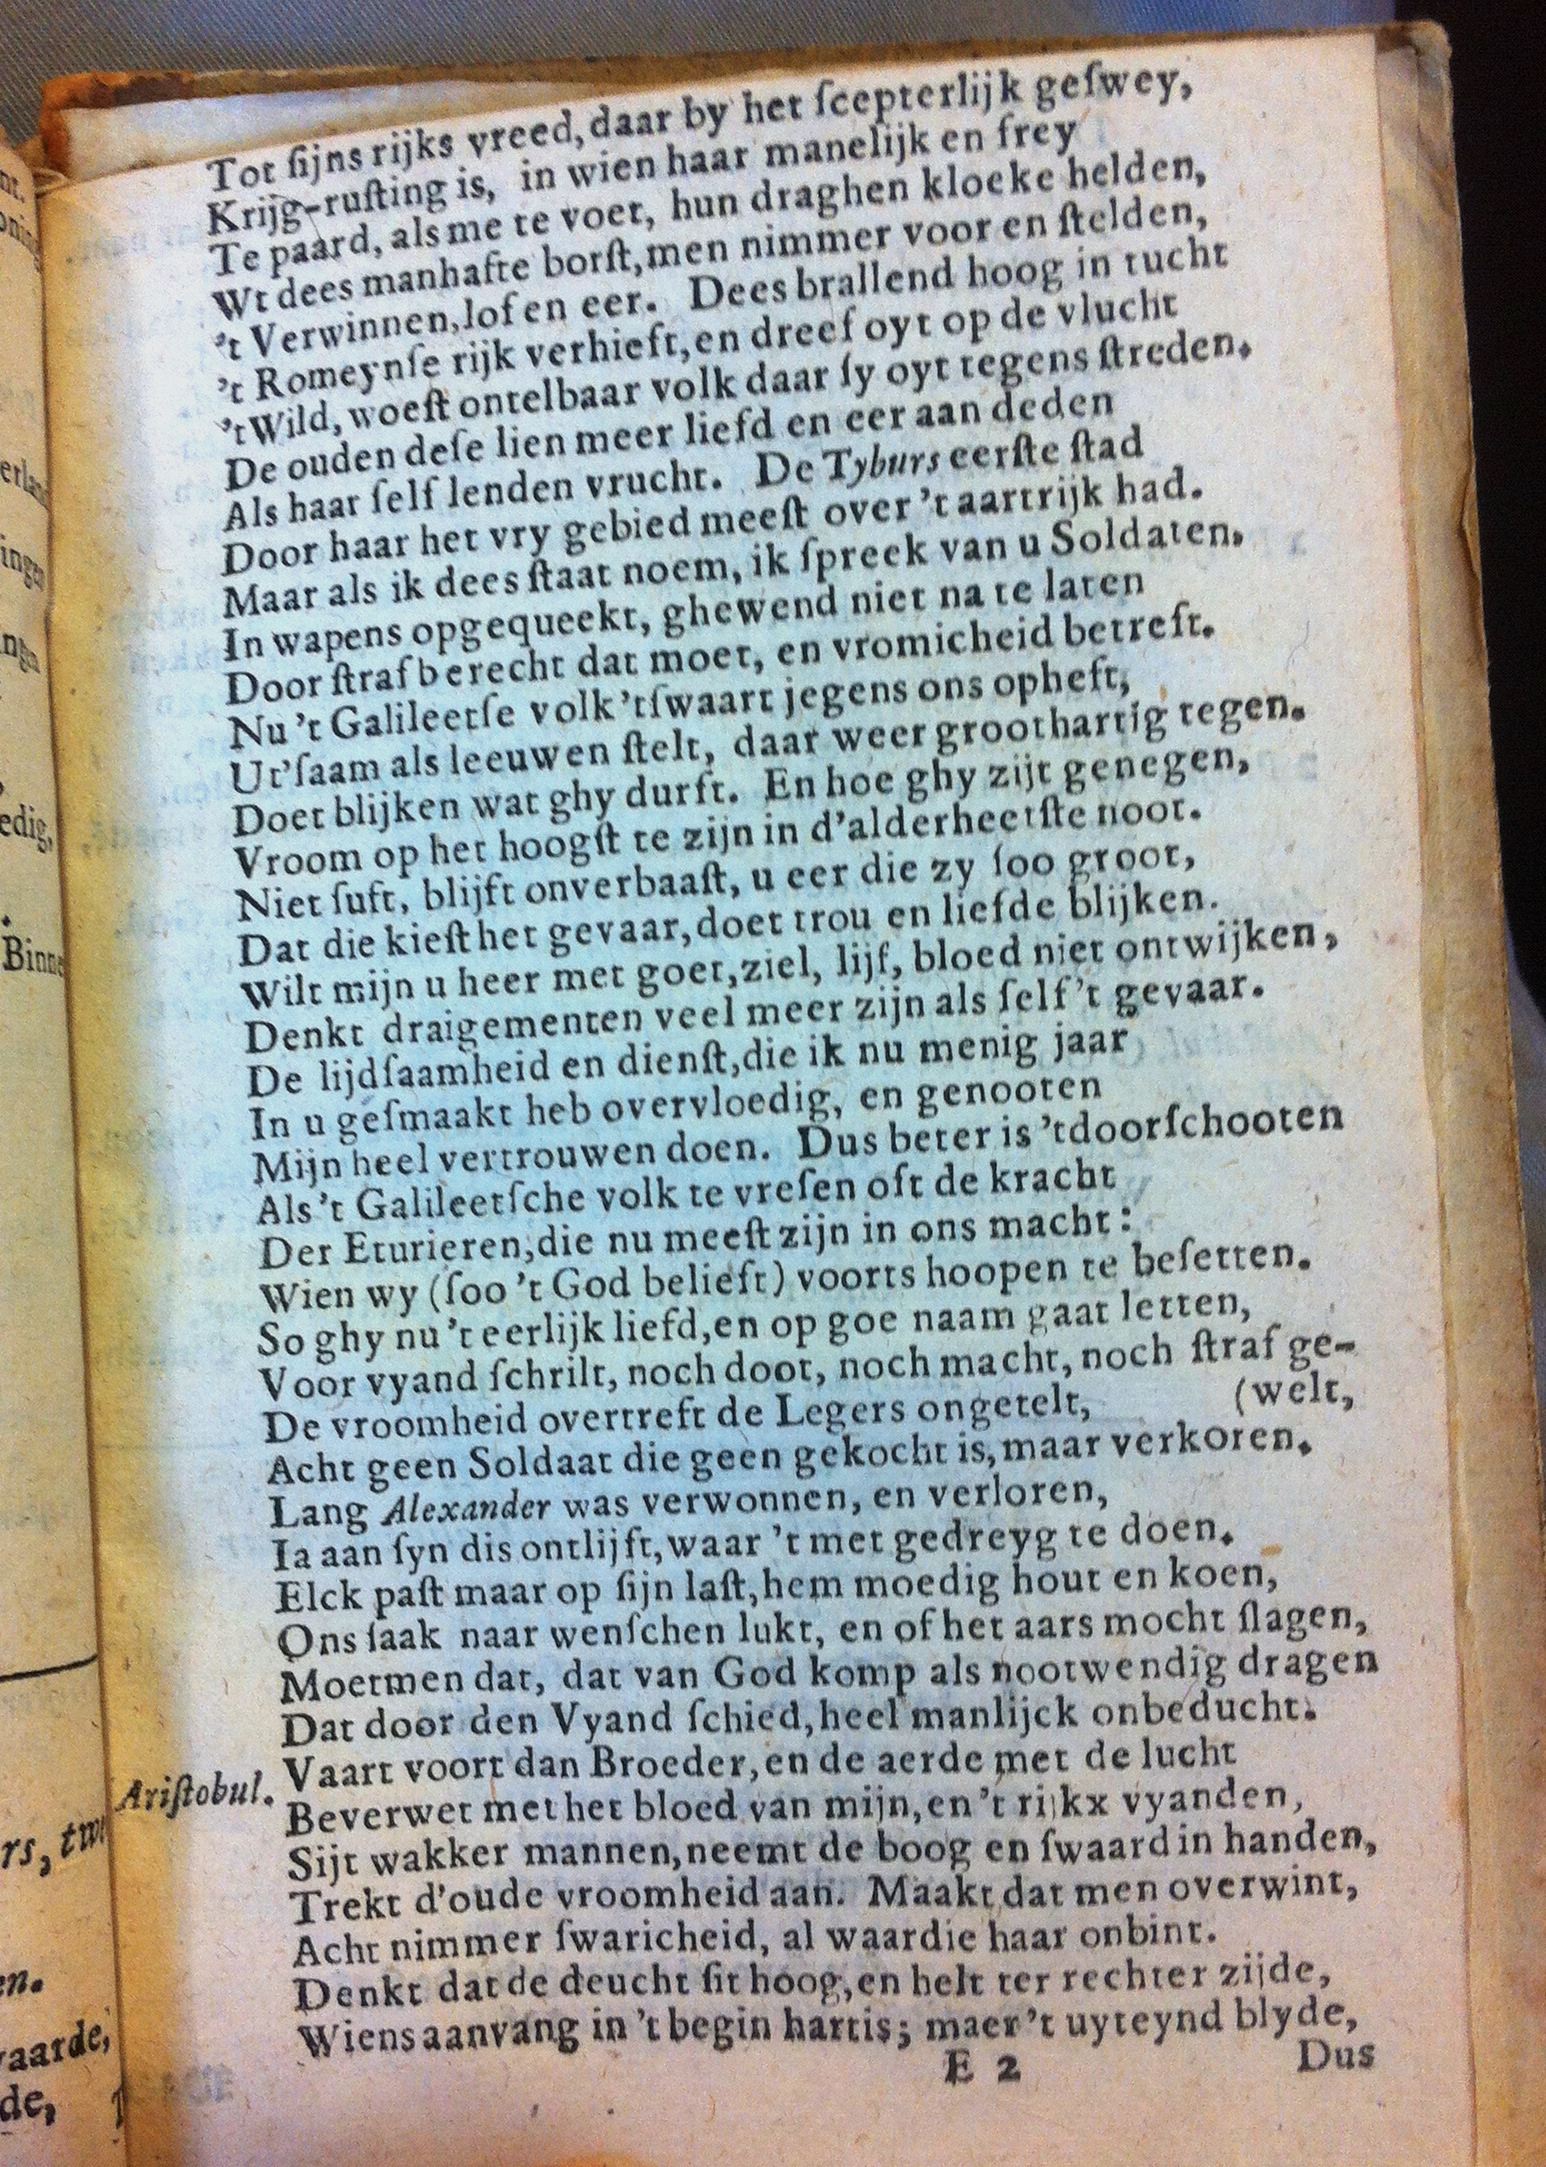 Tot ſijns rijks vreed, daar by het ſcepterlijk geſwey,
Krijg-ruſting is, in wien haar manelijk en frey
Te paard, als me te voet, hun draghen kloeke helden,
Wt dees manhafte borſt, men nimmer voor en ſtelden,
't Verwinnen, lof en eer. Dees brallend hoog in tucht
't Romeynſe rijk verhieft, en dreef oyt op de vlucht
't Wild, woeſt ontelbaar volk daar ſy oyt tegens ſtreden.
De ouden deſe lien meer liefd en eer aan deden
Als haar ſelf lenden vrucht. De Tyburs eerſte ſtad
Door haar het vry gebied meeſt over 't aartrijk had.
Maar als ik dees ſtaat noem, ik ſpreek van u Soldaten.
In wapens opgequeekt, ghewend niet na te laten
Door ſtraf berecht dat moet, en vromicheid betreft.
Nu 't Galileetſe volk 'tſwaart jegens ons opheft,
Ut'ſaam als leeuwen ſtelt, daar weer groothartig tegen.
Doet blijken wat ghy durft. En hoe ghy zijt genegen,
Vroom op het hoogſt te zijn in d'alderheetſte noot.
Niet ſuft, blijft onverbaaſt, u eer die zy ſoo groot,
Dat die kieſt het gevaar, doet trou en liefde blijken.
Wilt mijn u heer met goet, ziel, lijf, bloed niet ontwijken,
Denkt draigementen veel meer zijn als ſelf 't gevaar.
De lijdſaamheid en dienſt, die ik nu menig jaar
In u geſmaakt heb overvloedig, en genooten
Mijn heel vertrouwen doen. Dus beter is 'tdoorſchooten
Als 't Galileetſche volk te vreſen oft de kracht
Der Eturieren, die nu meeſt zijn in ons macht:
Wien wy (ſoo 't God belieft) voorts hoopen te beſetten.
So ghy nu 't eerlijk liefd, en op goe naam gaat letten,
Voor vyand ſchrilt, noch doot, noch macht, noch ſtraf ge-
De vroomheid overtreft de Legers ongetelt, (welt,
Acht geen Soldaat die geen gekocht is, maar verkoren.
Lang Alexander was verwonnen, en verloren,
Ia aan ſyn dis ontlijft, waar 't met gedreyg te doen.
Elck paſt maar op ſijn laſt, hem moedig hout en koen,
Ons ſaak naar wenſchen lukt, en of het aars mocht ſlagen,
Moetmen dat, dat van God komp als nootwendig dragen
Dat door den Vyand ſchied, heel manlijck onbeducht.
Ariſtobul. Vaart voort dan Broeder, en de aerde met de lucht
Beverwet met het bloed van mijn, en 't rijkx vyanden,
Sijt wakker mannen, neemt de boog en ſwaard in handen,
Trekt d'oude vroomheid aan. Maakt dat men overwint,
Acht nimmer ſwaricheid, al waardie haar onbint.
Denkt dat de deucht ſit hoog, en helt ter rechter zijde,
Wiens aanvang in 't begin hart is; maer 't uyteynd blyde,
E 2 Dus